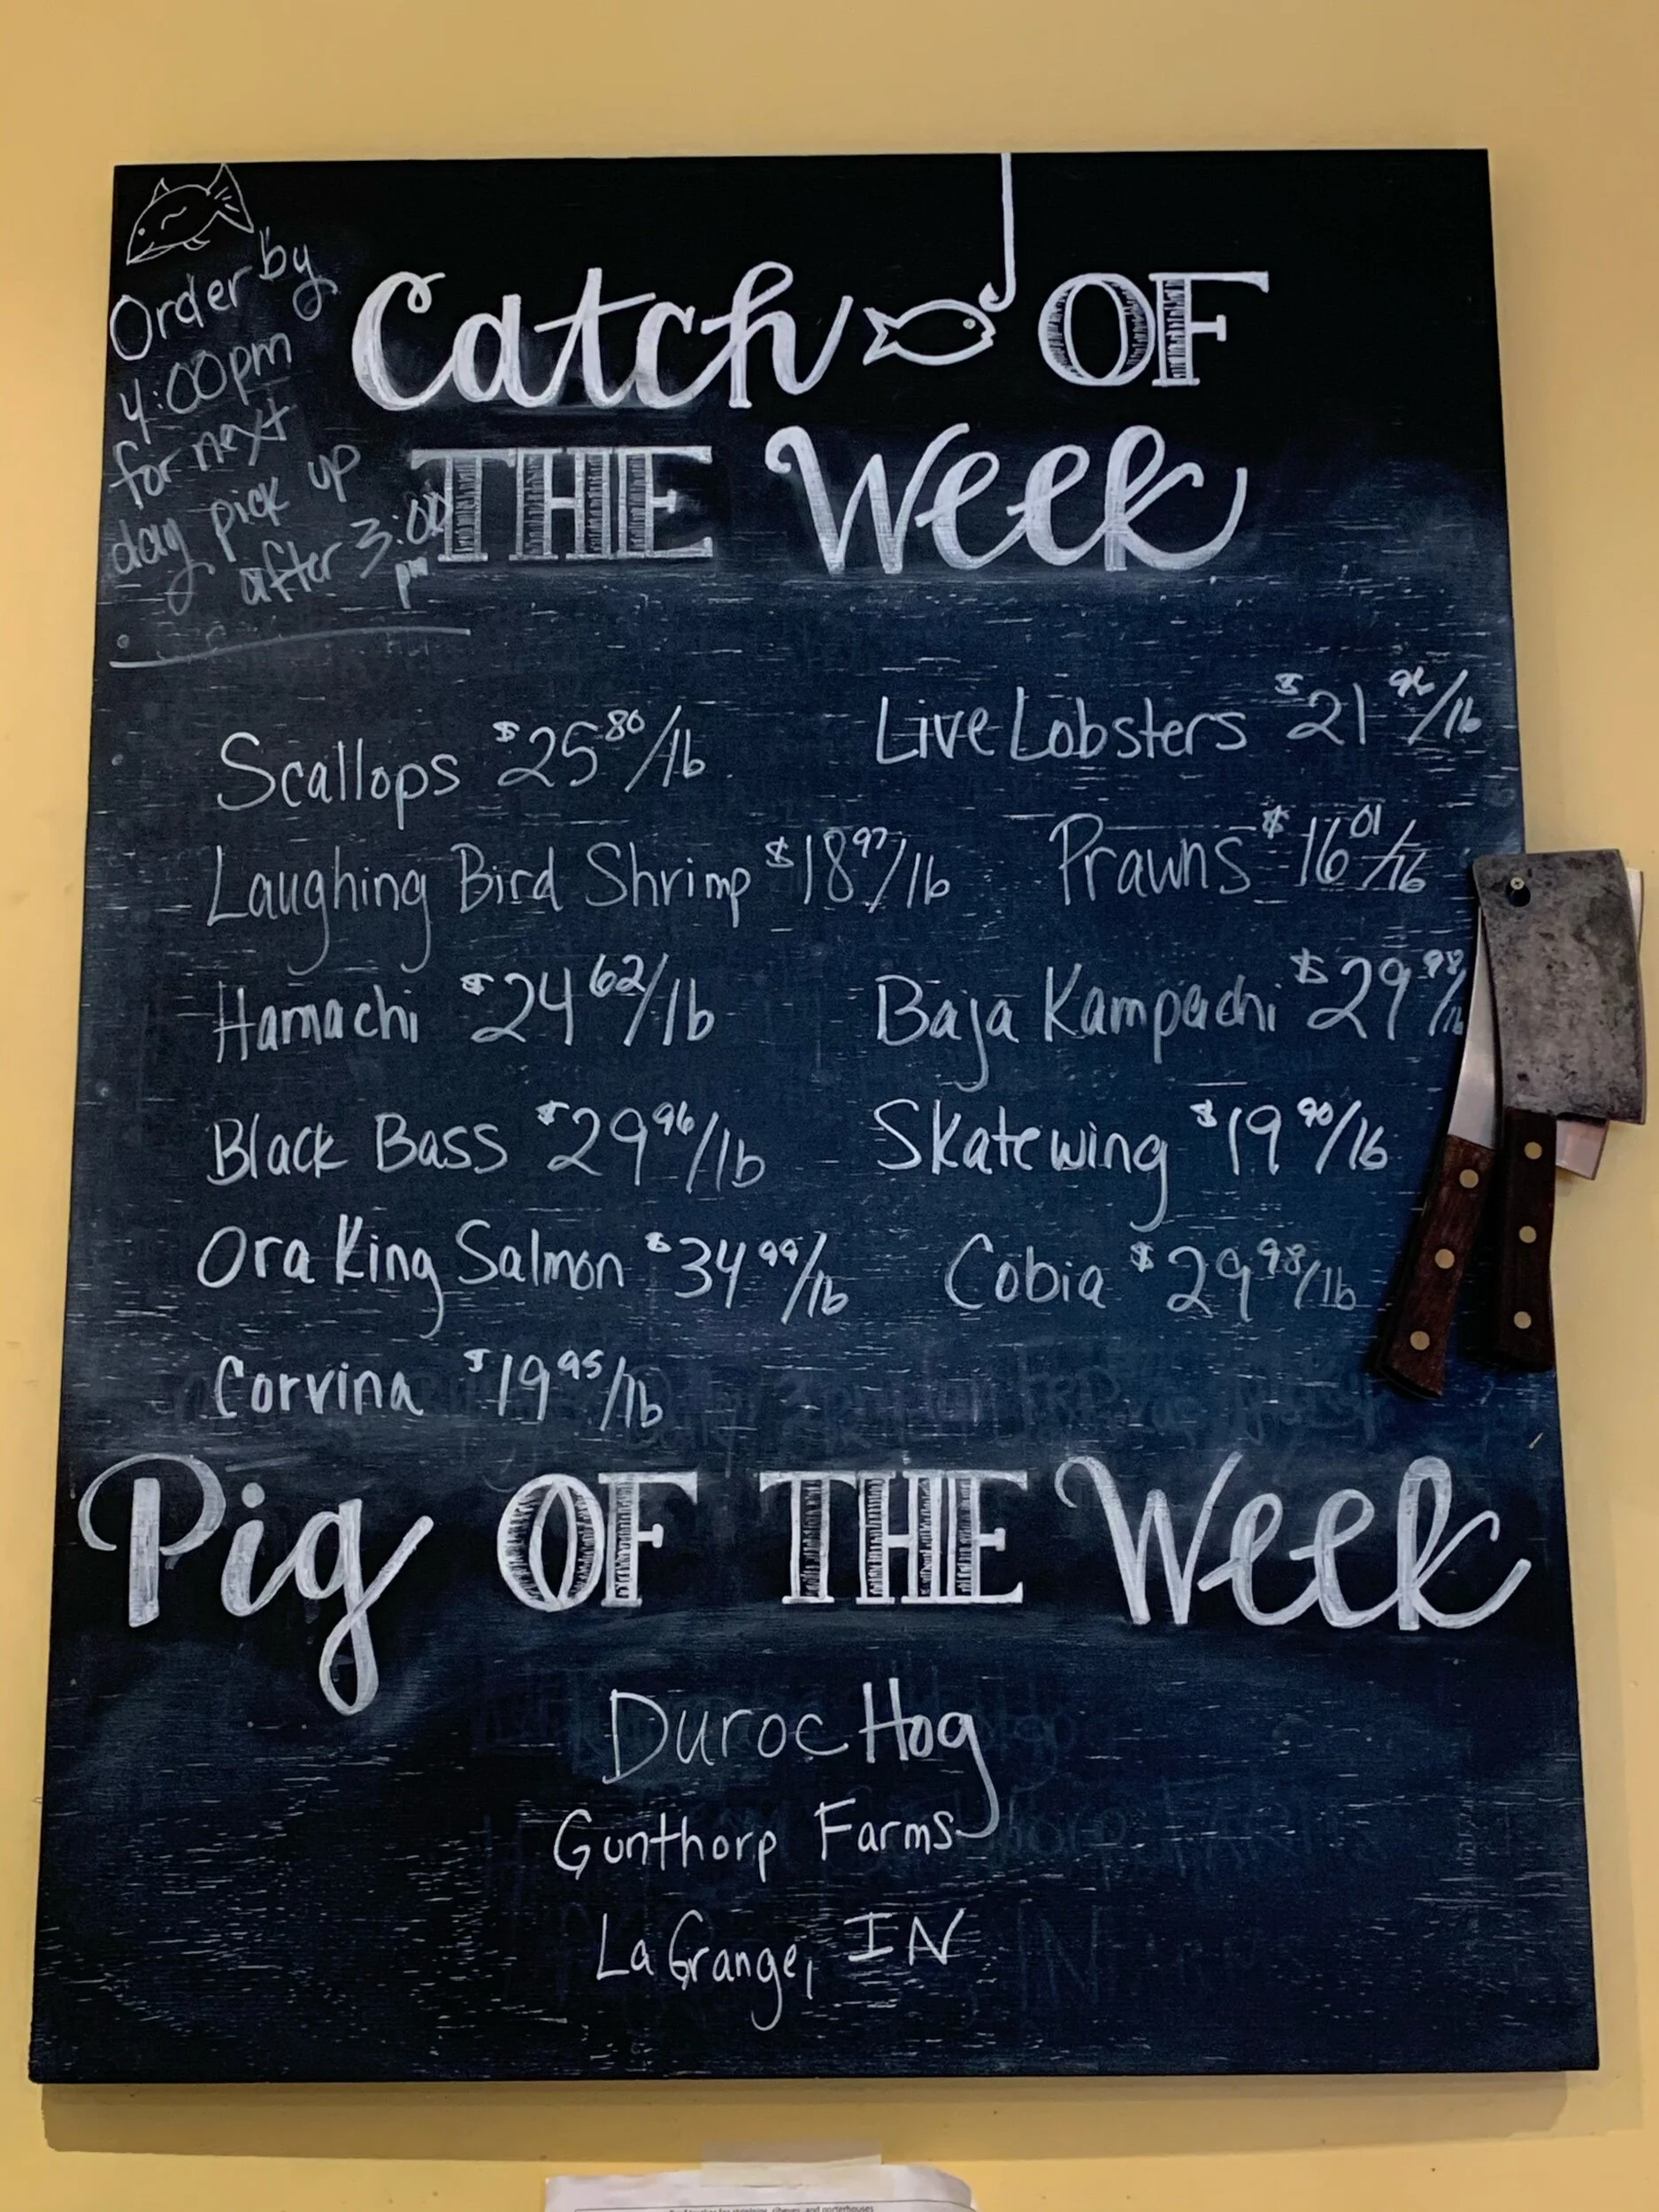 Order by
4:00pm
for next
day pick up
after 3:00
pm
Catch OF
THE Week
Scallops $25.80/lb
Live Lobsters $21.96/lb
Laughing Bird Shrimp $18.97/lb
Prawns $16.01/lb
Hamachi $24.62/lb
Baja Kampachi $29.98/lb
Black Bass $29.96/lb
Skatewing $19.90/lb
Ora King Salmon $34.99/lb
Cobia $29.98/lb
Corvina $19.95/lb
Pig OF THE Week
Duroc Hog
Gunthorp Farms
LaGrange, IN